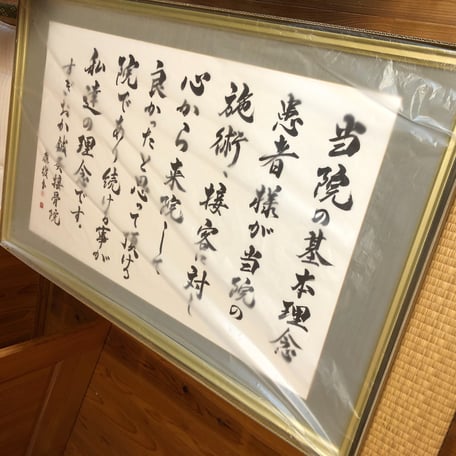 当院の基本理念
患者様が当院の
施術、接客に対し
心から来院して
良かったと思って頂ける
院であり続ける事が
私達の理念です。
すぎおか鍼灸接骨院